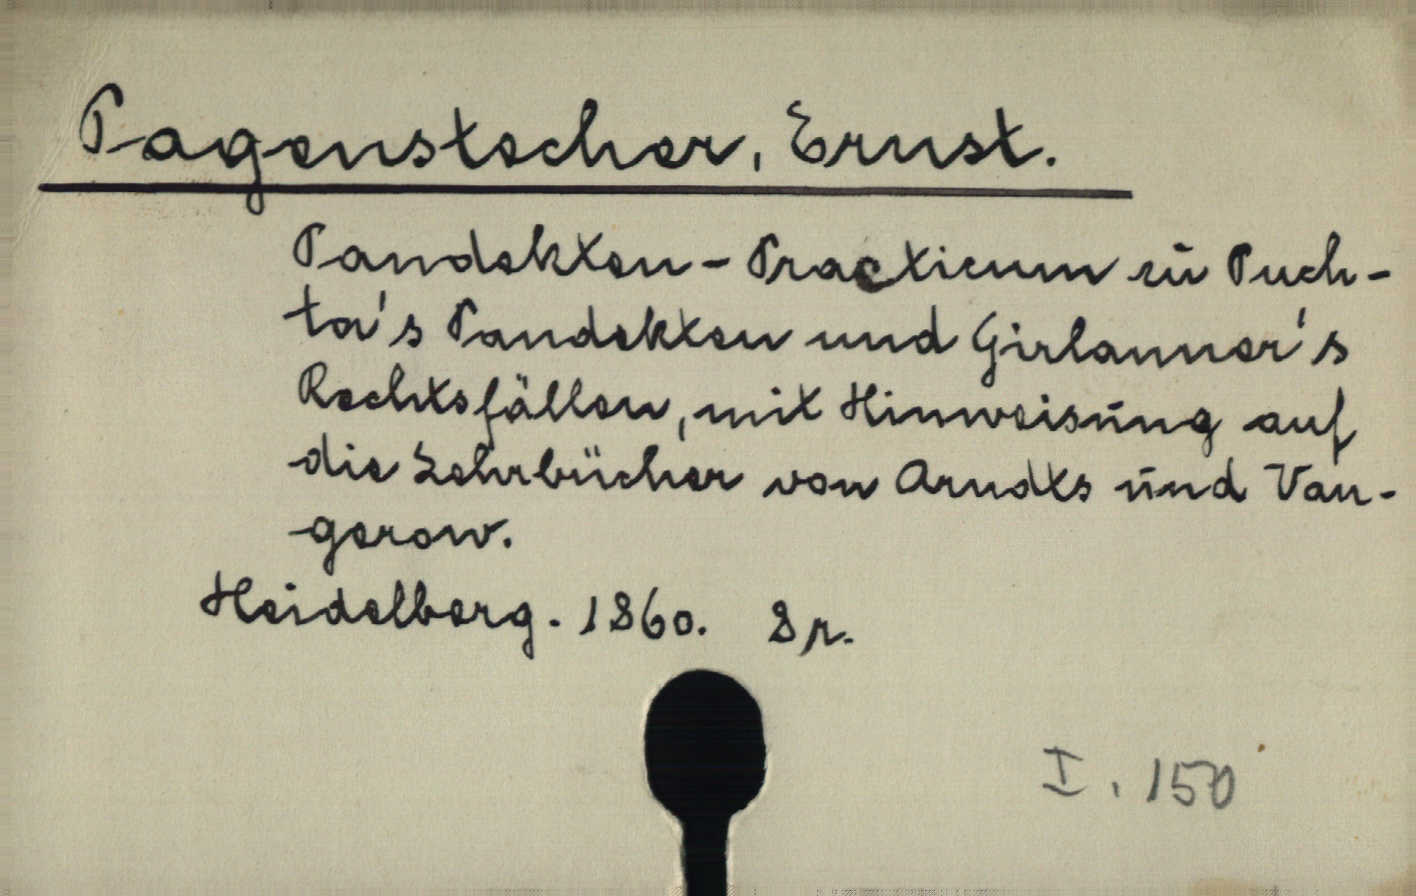 Pagenstecher, Ernst.
Pandekten-Practicum zu Puch-
ta's Pandekten und Girlanner's
Rechtsfällen, mit Hinweisung auf
die Lehrbücher von Arndts und Van-
gerow.
Heidelberg. 1860. 8r.
I. 150